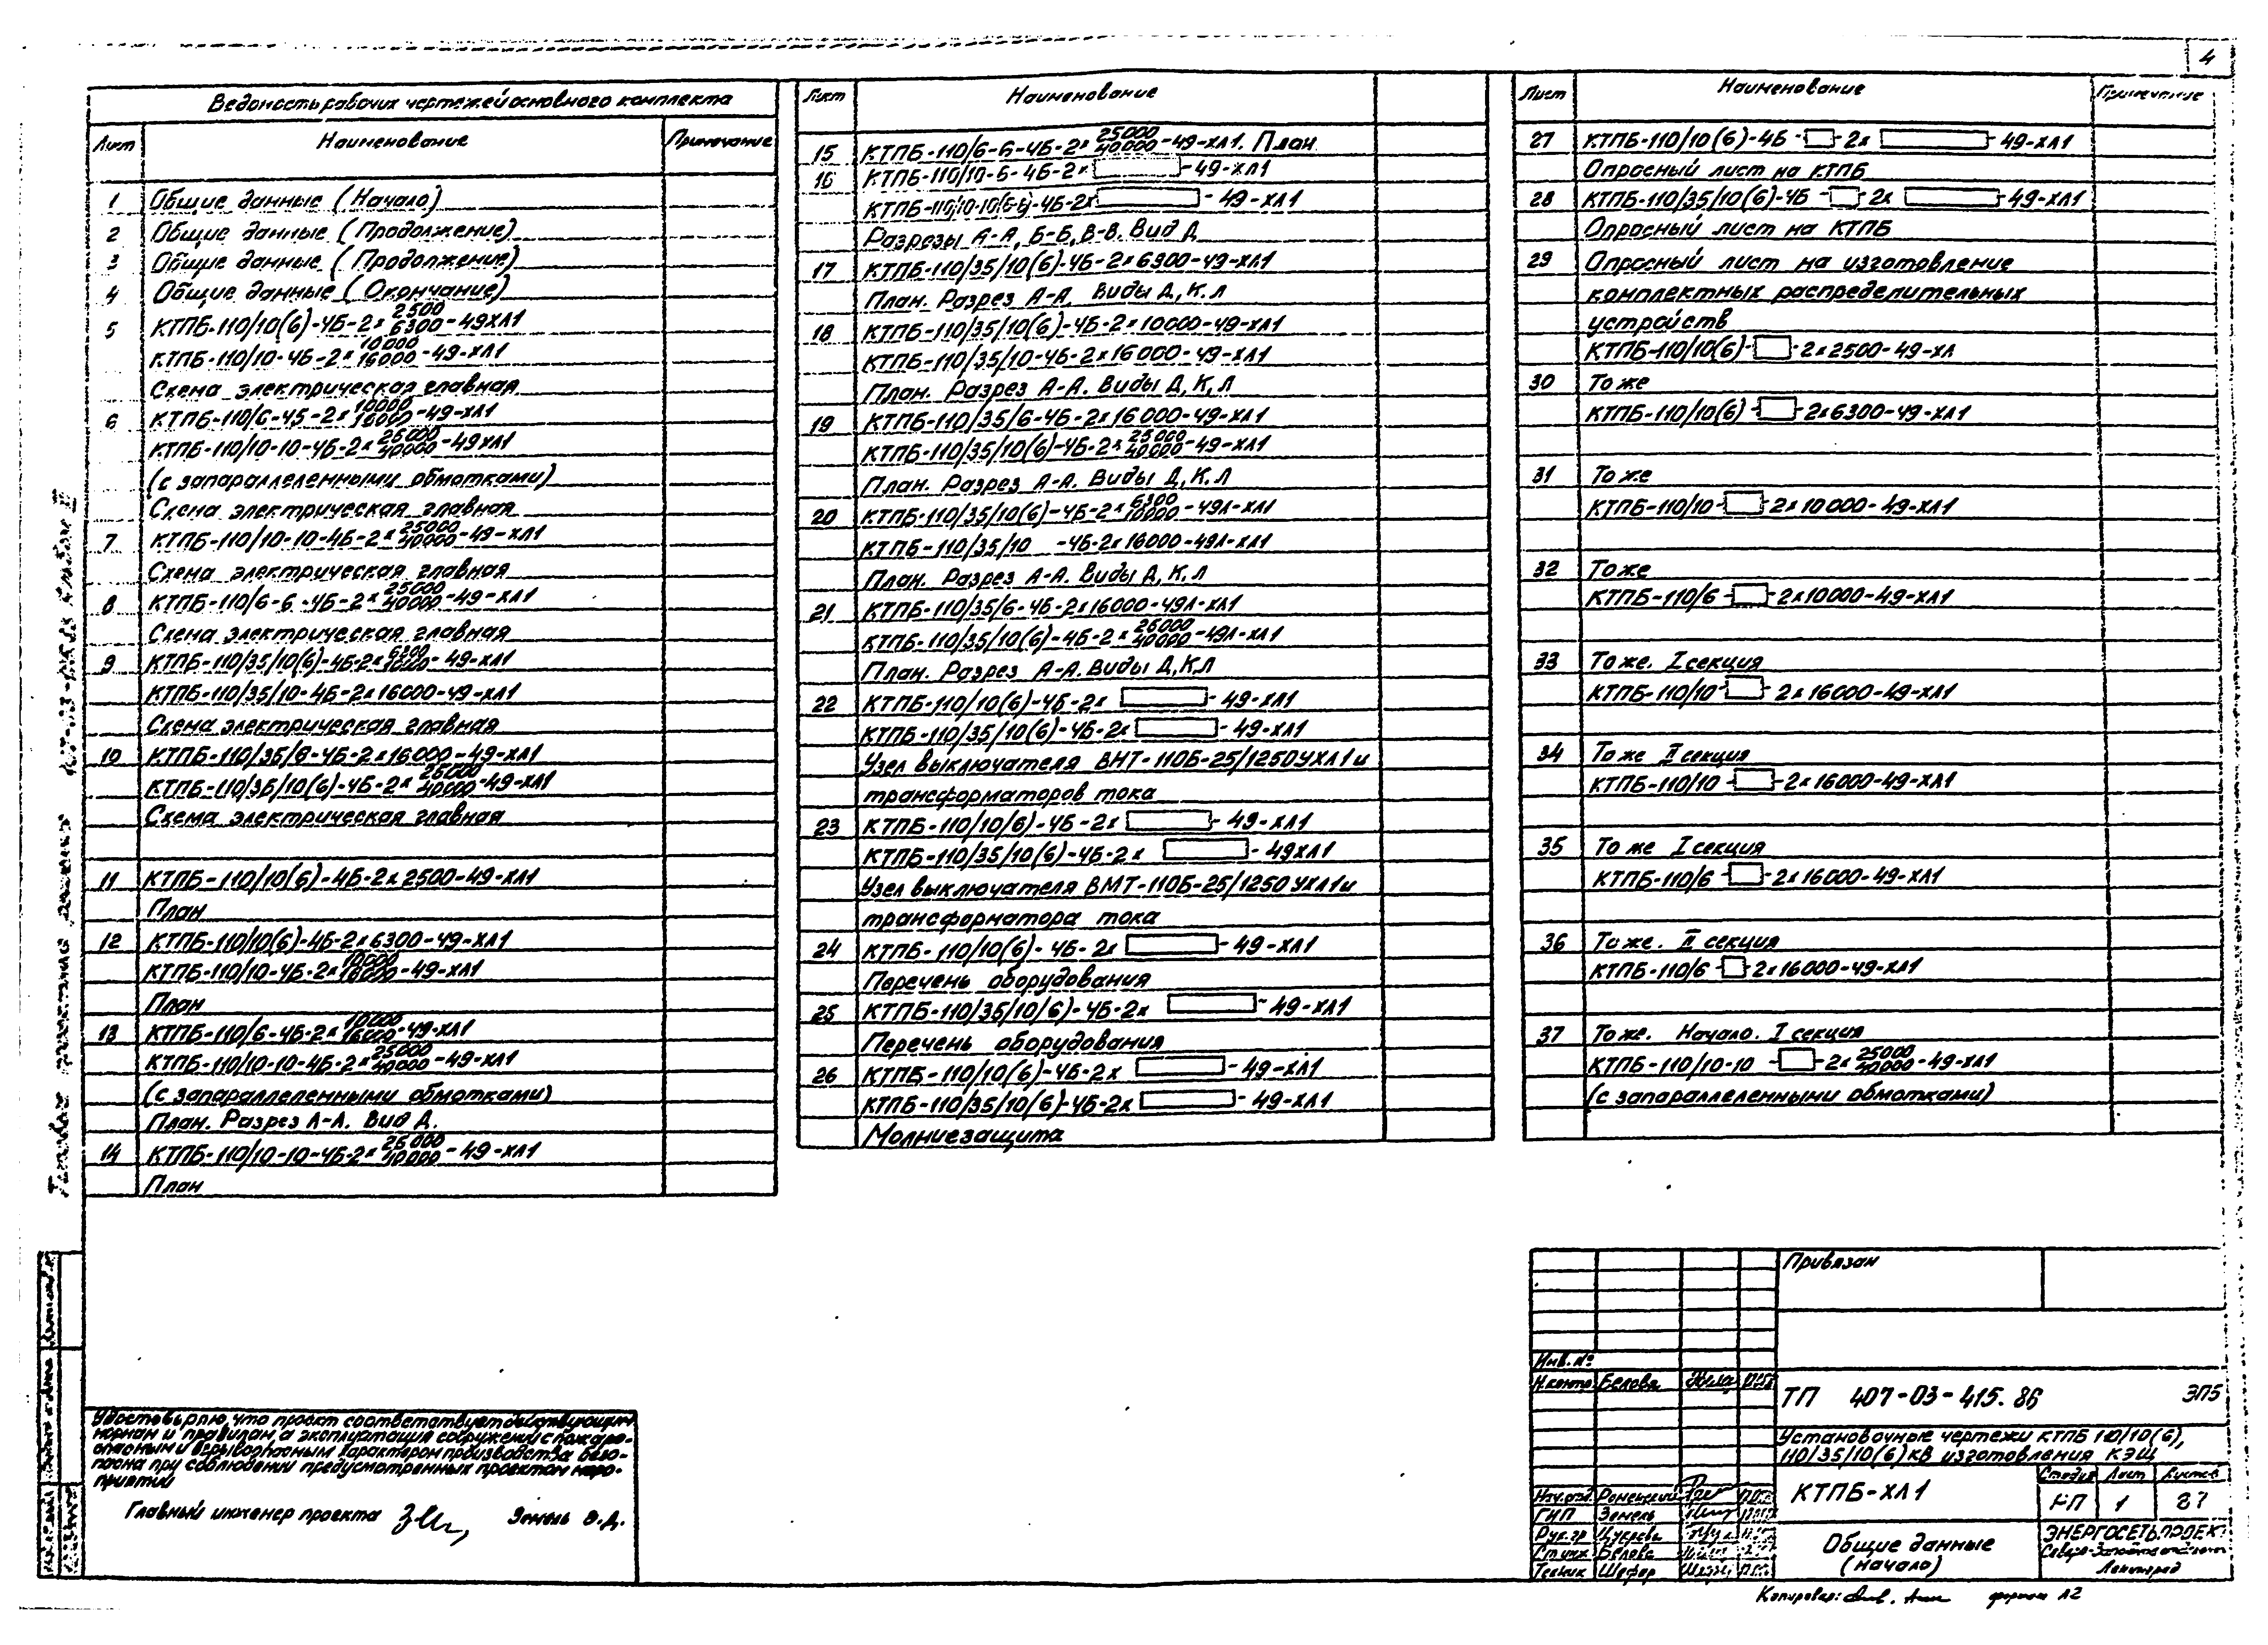 4
Ведомость рабочих чертежей основного комплекта
Лист Наименование Примечание
1 Общие данные (Начало)
2 Общие данные (Продолжение)
3 Общие данные (Продолжение)
4 Общие данные (Окончание)
5 КТПБ-110/10(6)-4Б-2х 2500/6300 -49ХЛ1
КТПБ-110/10-4Б-2х 10000/16000 -49-ХЛ1
Схема электрическая главная
6 КТПБ-110/6-4Б-2х 10000/16000 -49-ХЛ1
КТПБ-110/10-10-4Б-2х 25000/40000 -49ХЛ1
(с запараллеленными обмотками)
Схема электрическая главная
7 КТПБ-110/10-10-4Б-2х 25000/40000 -49-ХЛ1
Схема электрическая главная
8 КТПБ-110/6-6-4Б-2х 25000/40000 -49-ХЛ1
Схема электрическая главная
9 КТПБ-110/35/10(6)-4Б-2х 6300/10000 -49-ХЛ1
КТПБ-110/35/10-4Б-2х16000-49-ХЛ1
Схема электрическая главная
10 КТПБ-110/35/6-4Б-2х16000-49-ХЛ1
КТПБ-110/35/10(6)-4Б-2х 25000/40000 -49-ХЛ1
Схема электрическая главная
11 КТПБ-110/10(6)-4Б-2х2500-49-ХЛ1
План
12 КТПБ-110/10(6)-4Б-2х6300-49-ХЛ1
КТПБ-110/10-4Б-2х 10000/16000 -49-ХЛ1
План
13 КТПБ-110/6-4Б-2х 10000/16000 -49-ХЛ1
КТПБ-110/10-10-4Б-2х 25000/40000 -49-ХЛ1
(с запараллеленными обмотками)
План. Разрез А-А. Вид Д.
14 КТПБ-110/10-10-4Б-2х 25000/40000 -49-ХЛ1
План
Лист Наименование
15 КТПБ-110/6-6-4Б-2х 25000/40000 -49-ХЛ1. План
16 КТПБ-110/10-6-4Б-2х -49-ХЛ1
КТПБ-110/10-10(6-6)-4Б-2х -49-ХЛ1
Разрезы А-А, Б-Б, В-В. Вид Д
17 КТПБ-110/35/10(6)-4Б-2х6300-49-ХЛ1
План. Разрез А-А. Виды Д, К, Л
18 КТПБ-110/35/10(6)-4Б-2х10000-49-ХЛ1
КТПБ-110/35/10-4Б-2х16000-49-ХЛ1
План. Разрез А-А. Виды Д, К, Л
19 КТПБ-110/35/6-4Б-2х16000-49-ХЛ1
КТПБ-110/35/10(6)-4Б-2х 25000/40000 -49-ХЛ1
План. Разрез А-А. Виды Д, К, Л
20 КТПБ-110/35/10(6)-4Б-2х 6300/10000 -49Л-ХЛ1
КТПБ-110/35/10 -4Б-2х16000-49Л-ХЛ1
План. Разрез А-А. Виды Д, К, Л
21 КТПБ-110/35/6-4Б-2х16000-49Л-ХЛ1
КТПБ-110/35/10(6)-4Б-2х 25000/40000 -49Л-ХЛ1
План. Разрез А-А. Виды Д, К, Л
22 КТПБ-110/10(6)-4Б-2х -49-ХЛ1
КТПБ-110/35/10(6)-4Б-2х -49-ХЛ1
Узел выключателя ВМТ-110Б-25/1250УХЛ1 и
трансформаторов тока
23 КТПБ-110/10/6)-4Б-2х -49-ХЛ1
КТПБ-110/35/10(6)-4Б-2х -49ХЛ1
Узел выключателя ВМТ-110Б-25/1250УХЛ1 и
трансформатора тока
24 КТПБ-110/10(6)-4Б-2х -49-ХЛ1
Перечень оборудования
25 КТПБ-110/35/10/6)-4Б-2х -49-ХЛ1
Перечень оборудования
26 КТПБ-110/10(6)-4Б-2х -49-ХЛ1
КТПБ-110/35/10/6)-4Б-2х -49-ХЛ1
Молниезащита
Лист Наименование Примечание
27 КТПБ-110/10(6)-4Б- -2х -49-ХЛ1
Опросный лист на КТПБ
28 КТПБ-110/35/10(6)-4Б- -2х -49-ХЛ1
Опросный лист на КТПБ
29 Опросный лист на изготовление
комплектных распределительных
устройств
КТПБ-110/10(6)- -2х2500-49-ХЛ
30 То же
КТПБ-110/10(6)- -2х6300-49-ХЛ1
31 То же
КТПБ-110/10- -2х10000-49-ХЛ1
32 То же
КТПБ-110/6- -2х10000-49-ХЛ1
33 То же. I секция
КТПБ-110/10- -2х16000-49-ХЛ1
34 То же II секция
КТПБ-110/10- -2х16000-49-ХЛ1
35 То же I секция
КТПБ-110/6- -2х16000-49-ХЛ1
36 То же. II секция
КТПБ-110/6- -2х16000-49-ХЛ1
37 То же. Начало. I секция
КТПБ-110/10-10 - -2х 25000/40000 -49-ХЛ1
(с запараллеленными обмотками)
Удостоверяю, что проект соответствует действующим
нормам и правилам, а эксплуатация сооружений с пожаро-
опасным и взрывоопасным характером производства безо-
пасна при соблюдении предусмотренных проектом меро-
приятий
Главный инженер проекта Земель Э.Д.
Привязан
Инв. №
Н.контр. Белова
ТП 407-03-415.86 ЭП5
Установочные чертежи КТПБ 110/10(6),
110/35/10(6)кВ изготовления КЭЩ
КТПБ-ХЛ1
Стадия Лист Листов
РП 1 87
Нач.отд. Роменский
ГИП Земель
Рук.гр
Ст.инж Белова
Техник Шефер
Общие данные
(начало)
ЭНЕРГОСЕТЬПРОЕКТ
Северо-Западное отделение
Ленинград
Копировал: формат А2